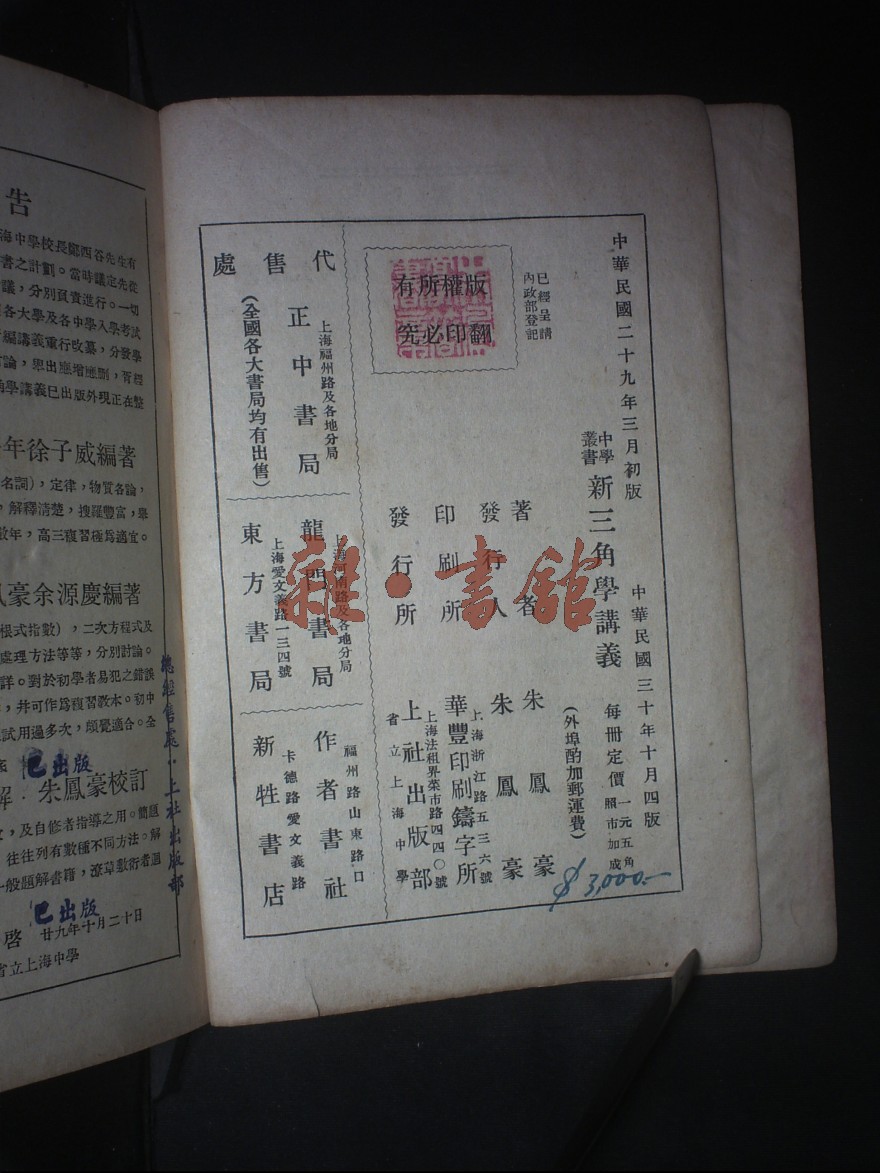 中華民國二十九年三月初版
中華民國三十年十月四版
中學叢書
新三角學講義
每冊定價
一元五角
照市加成
(外埠酌加郵運費)
已經呈請
內政部登記
版權所有
翻印必究
著者
朱鳳豪
發行人
朱鳳豪
印刷所
上海浙江路五三六號
華豐印刷鑄字所
上海法租界菜市路四四〇號
發行所
上社出版部
省立上海中學
代售處
上海福州路及各地分局
正中書局
(全國各大書局均有出售)
上海河南路及各地分局
龍門書局
上海愛文義路一三四號
東方書局
福州路山東路口
作者書社
卡德路愛文義路
新牲書店
$3,000.-
雜·書館
告
海中學校長鄭西谷先生有
書之計劃。當時議定先從
議,分別負責進行。一切
各大學及各中學入學考試
編講義重行改纂,分發學
討論,舉出應增應刪,
學講義已出版外現正在整
年徐子威編著
名詞),定律,物質各論,
,解釋清楚,搜羅豐富,舉
數年,高三複習極為適宜。
豪余源慶編著
根式指數),二次方程式及
處理方法等等,分別討論。
詳。對於初學者易犯之錯誤
,并可作為複習教本。初中
試用過多次,頗覺適合。全
已出版
解.朱鳳豪校訂
,及自修者指導之用。簡題
往往列有數種不同方法。解
一般題解書籍,潦草數衍者迥
已出版
啓 廿九年十月二十日
省立上海中學
總經售處·上社出版部